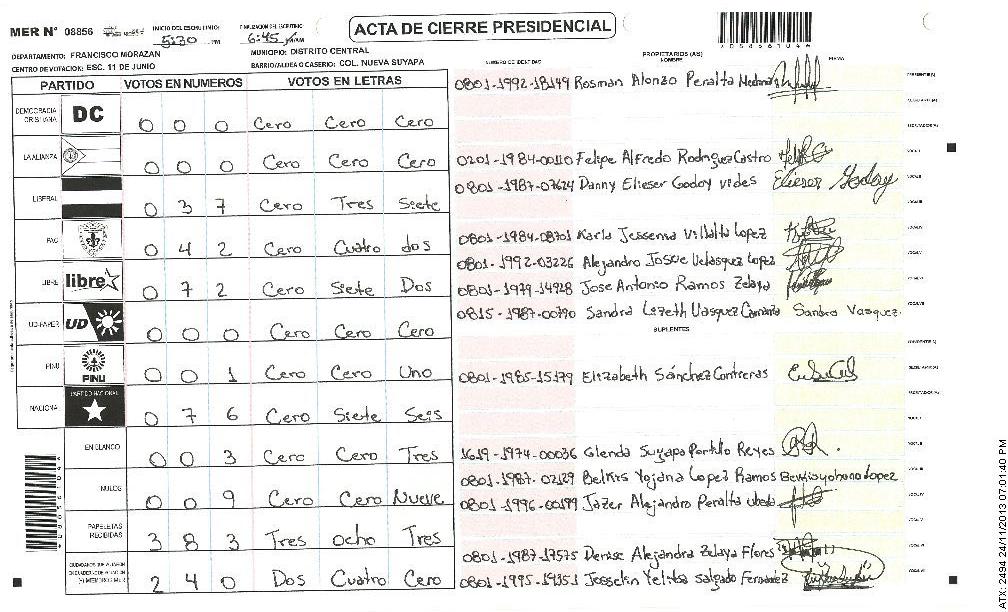 MER Nº 08856 INICIO DEL ESCRUTINIO: 5:30 PM FINALIZACION DEL ESCRUTINIO 6:45
ACTA DE CIERRE PRESIDENCIAL
DEPARTAMENTO: FRANCISCO MORAZAN MUNICIPIO: DISTRITO CENTRAL
CENTRO DE VOTACION: ESC. 11 DE JUNIO BARRIO/ALDEA O CASERIO: COL. NUEVA SUYAPA
PARTIDO VOTOS EN NUMEROS VOTOS EN LETRAS
DEMOCRACIA CRISTIANA DC 0 0 0 Cero Cero Cero
LA ALIANZA 0 0 0 Cero Cero Cero
LIBERAL 0 3 7 Cero Tres Siete
PAC 0 4 2 Cero Cuatro dos
LIBRE libre 0 7 2 Cero Siete Dos
UD-FAPER UD 0 0 0 Cero Cero Cero
PINU PINU 0 0 1 Cero Cero Uno
NACIONAL PARTIDO NACIONAL 0 7 6 Cero Siete Seis
EN BLANCO 0 0 3 Cero Cero Tres
NULOS 0 0 9 Cero Cero Nueve
PAPELETAS RECIBIDAS 3 8 3 Tres ocho Tres
2 4 0 Dos Cuatro Cero
NUMERO DE IDENTIDAD PROPIETARIOS (AS) NOMBRE FIRMA
0801-1992-18149 Rosman Alonzo Peralta Medina
0201-1984-00110 Felipe Alfredo Rodriguez Castro
0801-1987-07624 Danny Elieser Godoy vides Elieser Godoy
0801-1984-08701 Karla Jessenia Villalta Lopez
0801-1992-03226 Alejandro Josue Velasquez Lopez
0801-1979-14928 Jose Antonio Ramos Zelaya
0815-1987-00790 Sandra Lizeth Vasquez Sandra Vasquez
SUPLENTES
0801-1985-15179 Elizabeth Sánchez Contreras
1619-1974-00036 Glenda Suyapa Portillo Reyes
0801-1987-02129 Belkis Yojana Lopez Ramos
0801-1996-00199 Jazer Alejandro Peralta Ubeda
0801-1987-17575 Denise Alejandra Zelaya Flores
0801-1995-19351 Josselin Yelitsa Salgado Fernandez
ATX: 2494 24/11/2013 07:01:40 PM